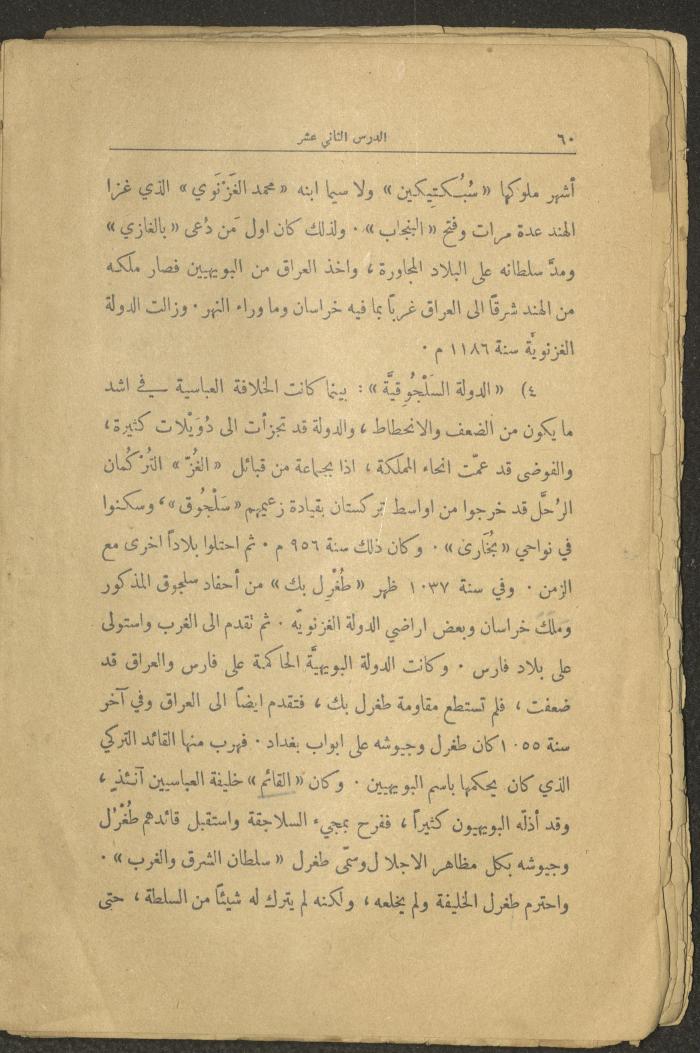 ٦٠ الدرس الثاني عشر
أشهر ملوكها «سُبُكتيكين» ولا سيما ابنه «محمد الغَزْنَوي» الذي غزا
الهند عدة مرات وفتح «البنجاب» ٠ ولذلك كان اول مَن دُعى «بالغازي»
ومدَّ سلطانه على البلاد المجاورة ، واخذ العراق من البويهيين فصار ملكه
من الهند شرقاً الى العراق غرباً بما فيه خراسان وما وراء النهر ٠ وزالت الدولة
الغزنويَّة سنة ١١٨٦ م ٠
٤) «الدولة السَلْجُوقيَّة» : بينما كانت الخلافة العباسية في اشد
ما يكون من الضعف والانحطاط ، والدولة قد تجزأت الى دُوَيْلات كثيرة ،
والفوضى قد عمّت انحاء المملكة ، اذا بجماعة من قبائل «الغُزّ» التُرْكُمان
الرُحَّل قد خرجوا من اواسط تركستان بقيادة زعيمهم «سَلْجُوق» ، وسكنوا
في نواحي «بُخَارى» ٠ وكان ذلك سنة ٩٥٦ م ٠ ثم احتلوا بلاداً اخرى مع
الزمن ٠ وفي سنة ١٠٣٧ ظهر «طُغْرِل بك» من أحفاد سلجوق المذكور
وَمَلَكَ خراسان وبعض اراضي الدولة الغزنويّه ٠ ثم تقدم الى الغرب واستولى
على بلاد فارس ٠ وكانت الدولة البويهيَّة الحاكمة على فارس والعراق قد
ضعفت ، فلم تستطع مقاومة طغرل بك ، فتقدم ايضاً الى العراق وفي آخر
سنة ١٠٥٥ كان طغرل وجيوشه على ابواب بغداد ٠ فهرب منها القائد التركي
الذي كان يحكمها باسم البويهيين ٠ وكان «القائم» خليفة العباسيين آنئذٍ ،
وقد أذلّه البويهيون كثيراً ، ففرح بمجيء السلاجقة واستقبل قائدهم طُغْرُل
وجيوشه بكل مظاهر الاجلال وسمّى طغرل «سلطان الشرق والغرب» ٠
واحترم طغرل الخليفة ولم يخلعه ، ولكنه لم يترك له شيئاً من السلطة ، حتى